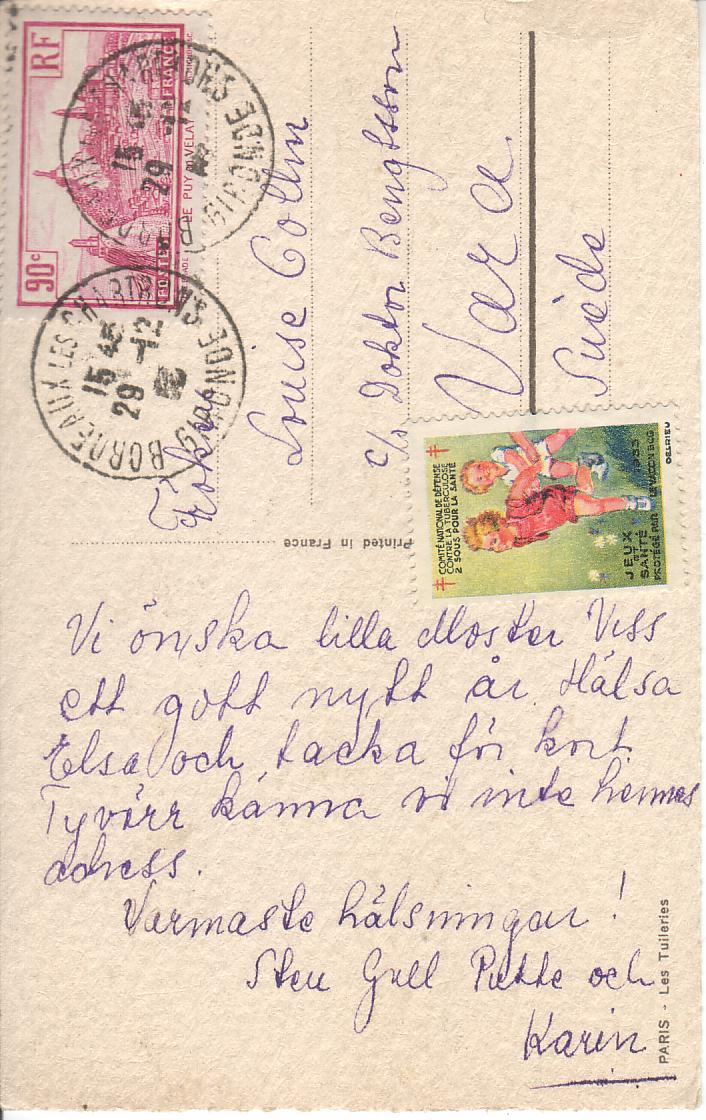 Vi önska lilla Moster Viss
ett gott nytt år. Hälsa
Elsa och tacka för kort.
Tyvärr känna vi inte hennes
adress.
Varmaste hälsningar!
Sten Gull Putte och
Karin
Fröken
Louise Collin
c/o Doktor Bengtsson
Vara
Suède
RF
90c
POSTES
FRANCE
LE PUY EN VELAY
BORDEAUX LES CHARTRONS GIRONDE
15 45
29
BORDEAUX LES CHARTRONS GIRONDE
15 45
29 - 12
COMITÉ NATIONAL DE DÉFENSE
CONTRE LA TUBERCULOSE
2 SOUS POUR LA SANTÉ
JEUX
ET
SANTÉ
1933
PROTÉGÉ PAR LE VACCIN BCG
DELRIEU
Printed in France
PARIS - Les Tuileries